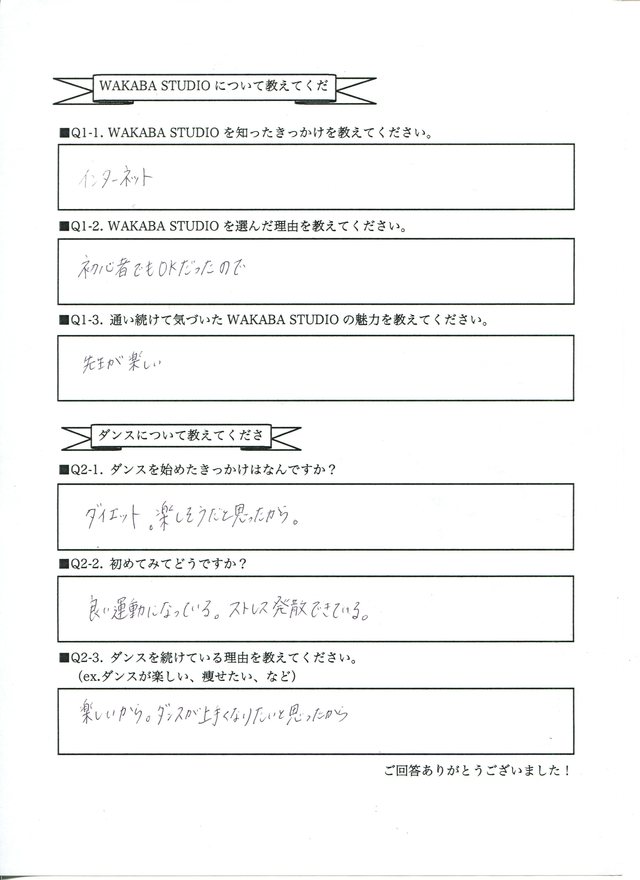 WAKABA STUDIO について教えてくだ
■Q1-1. WAKABA STUDIO を知ったきっかけを教えてください。
インターネット
■Q1-2. WAKABA STUDIO を選んだ理由を教えてください。
初心者でもOKだったので
■Q1-3. 通い続けて気づいた WAKABA STUDIO の魅力を教えてください。
先生が楽しい
ダンスについて教えてくださ
■Q2-1. ダンスを始めたきっかけはなんですか？
ダイエット。楽しそうだと思ったから。
■Q2-2. 初めてみてどうですか？
良い運動になっている。ストレス発散できている。
■Q2-3. ダンスを続けている理由を教えてください。
（ex.ダンスが楽しい、痩せたい、など）
楽しいから。ダンスが上手くなりたいと思ったから
ご回答ありがとうございました！